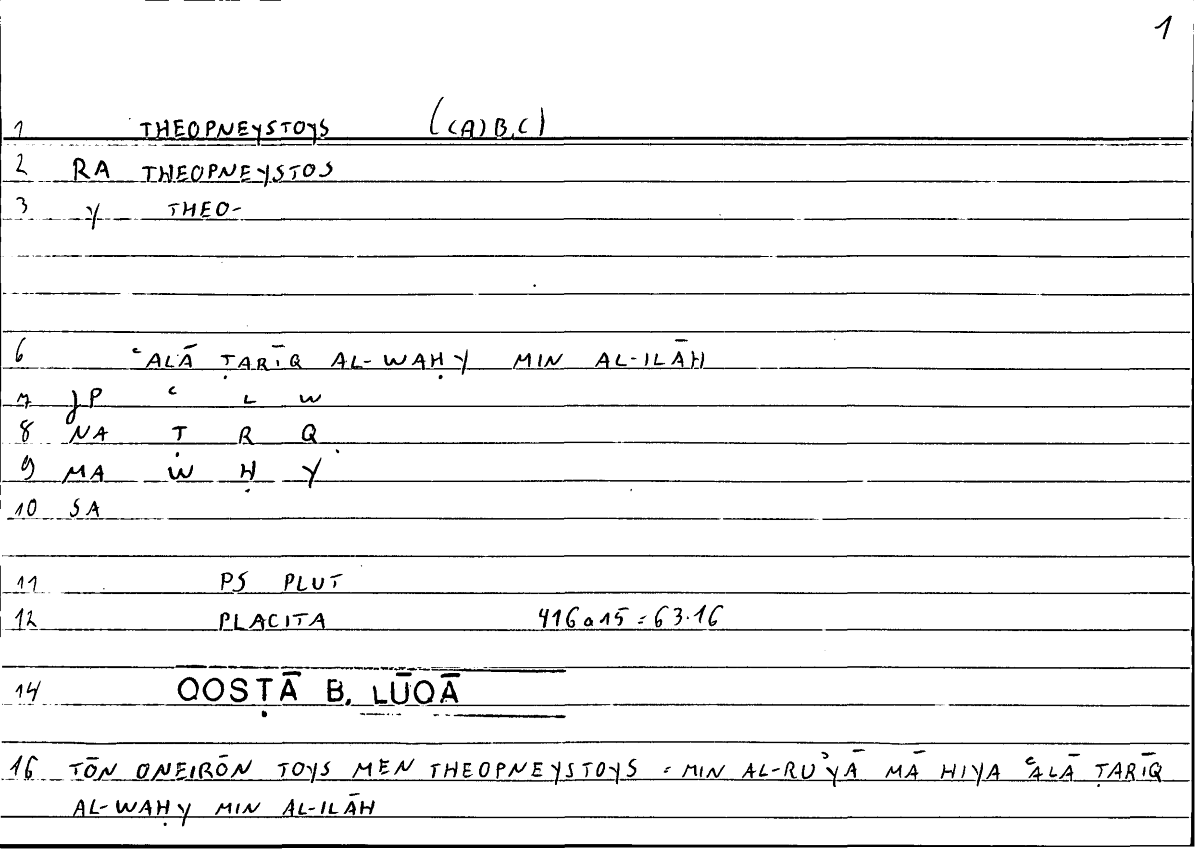 1
1 THEOPNEYSTOYS ((A)B,C)
2 RA THEOPNEYSTOS
3 Y THEO-
6 ʿALĀ ṬARĪQ AL-WAḤY MIN AL-ILĀH
7 JP ʿ L W
8 NA Ṭ R Q
9 MA W Ḥ Y
10 SA
11 PS PLUT
12 PLACITA 416a15=63.16
14 QOSṬĀ B. LŪQĀ
16 TŌN ONEIRŌN TOYS MEN THEOPNEYSTOYS = MIN AL-RUʾYĀ MĀ HIYA ʿALĀ ṬARĪQ
AL-WAḤY MIN AL-ILĀH